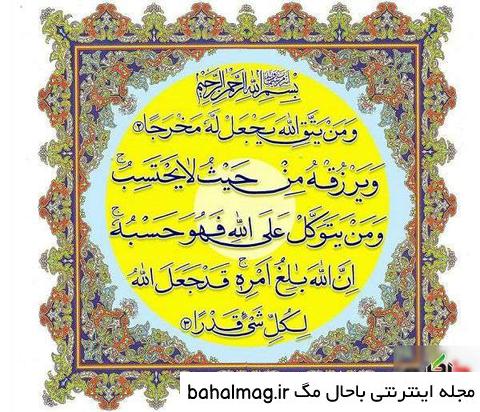 بِسْمِ اللهِ الرَّحْمٰنِ الرَّحِيْمِ
وَمَنْ يَتَّقِ اللهَ يَجْعَلْ لَهُ مَخْرَجًا ۲
وَيَرْزُقْهُ مِنْ حَيْثُ لَا يَحْتَسِبُ ج
وَمَنْ يَتَوَكَّلْ عَلَى اللهِ فَهُوَ حَسْبُهُ ج
اِنَّ اللهَ بَالِغُ اَمْرِهِ ج قَدْ جَعَلَ اللهُ
لِكُلِّ شَیْءٍ قَدْرًا ۳
مجله اینترنتی باحال مگ bahalmag.ir